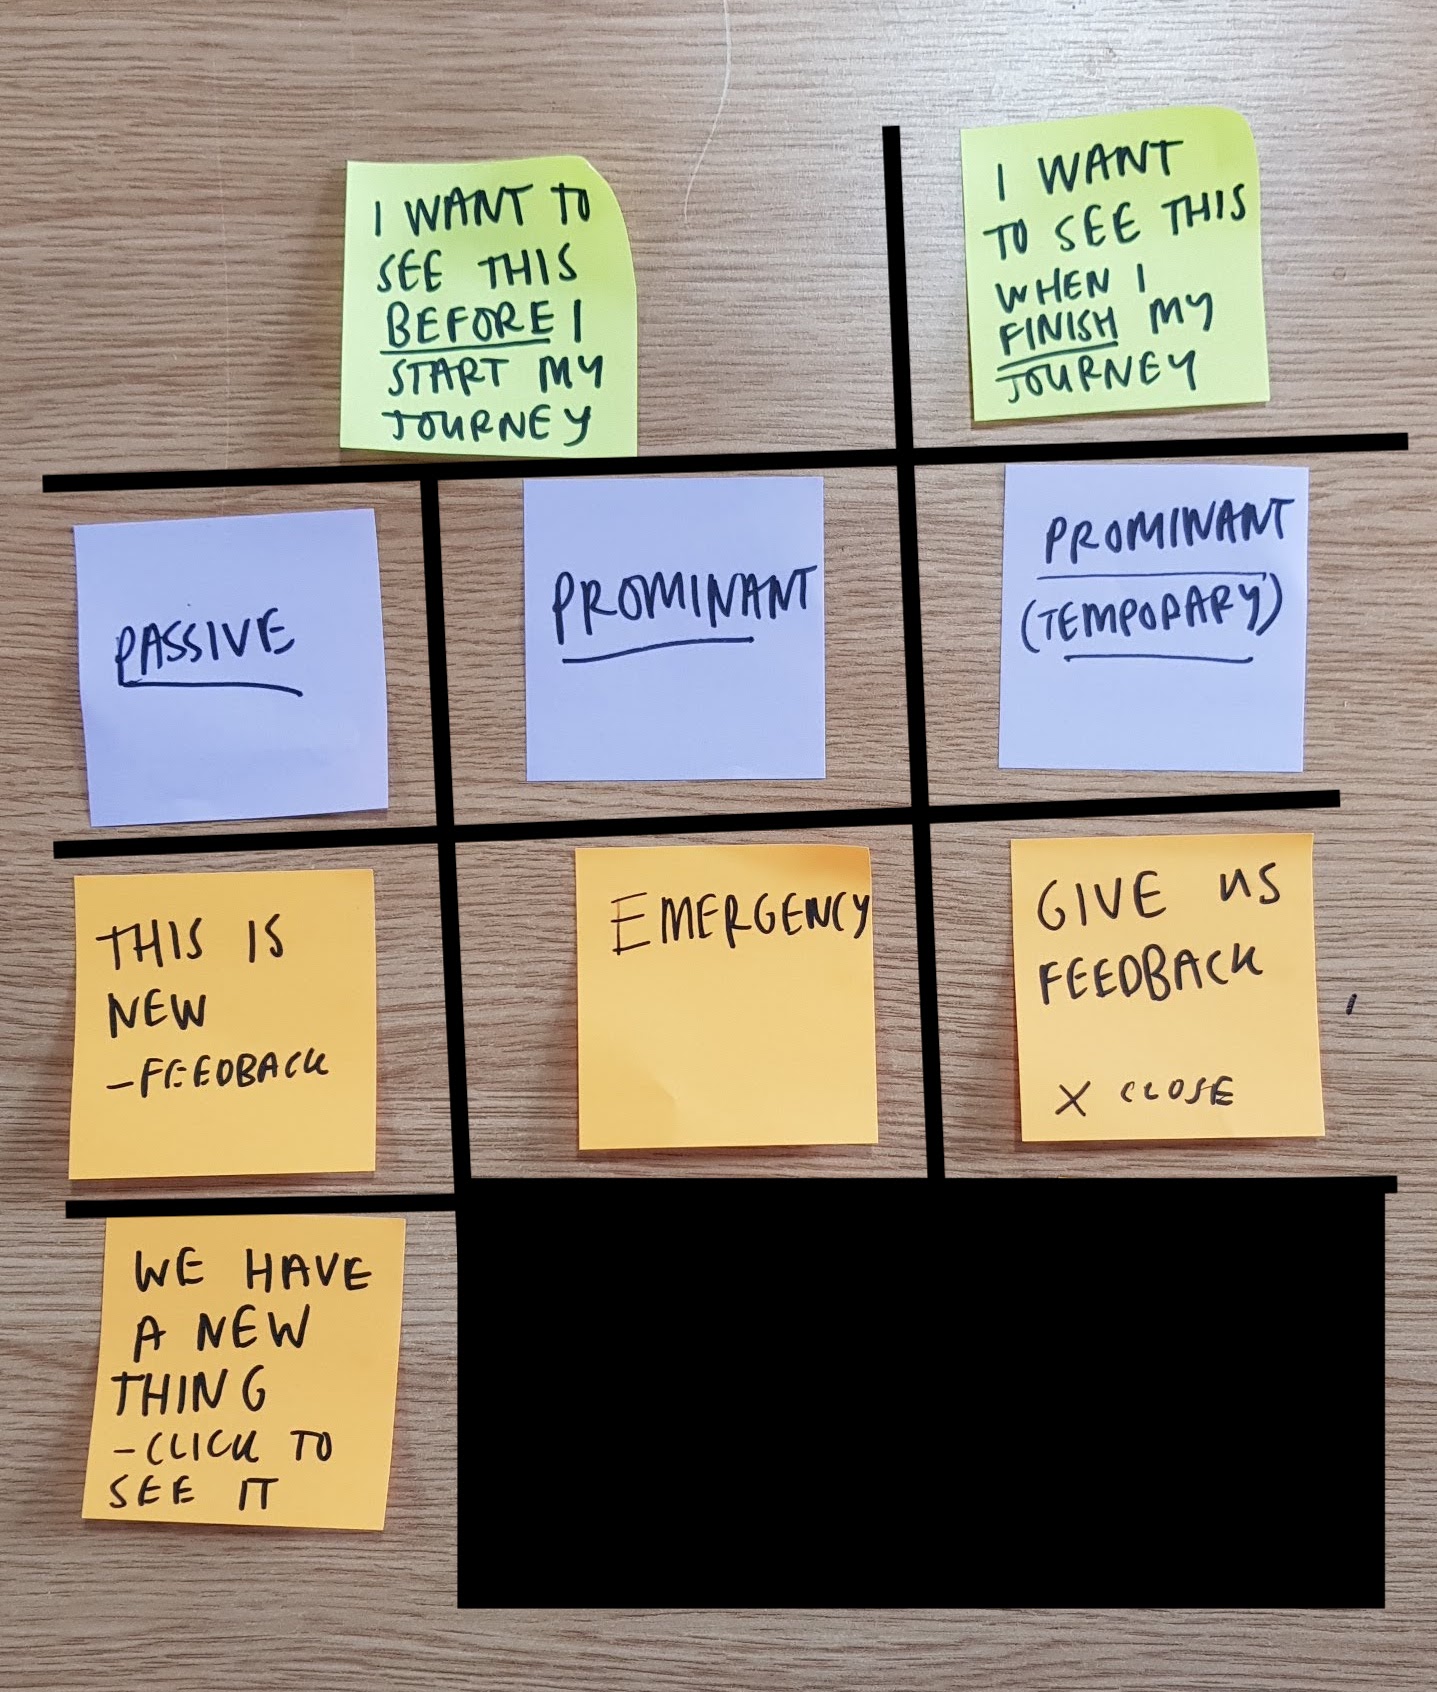 I WANT TO
SEE THIS
BEFORE I
START MY
JOURNEY
I WANT
TO SEE THIS
WHEN I
FINISH MY
JOURNEY
PASSIVE
PROMINANT
PROMINANT
(TEMPORARY)
THIS IS
NEW
-FEEDBACK
EMERGENCY
GIVE US
FEEDBACK
X CLOSE
WE HAVE
A NEW
THING
-CLICK TO
SEE IT